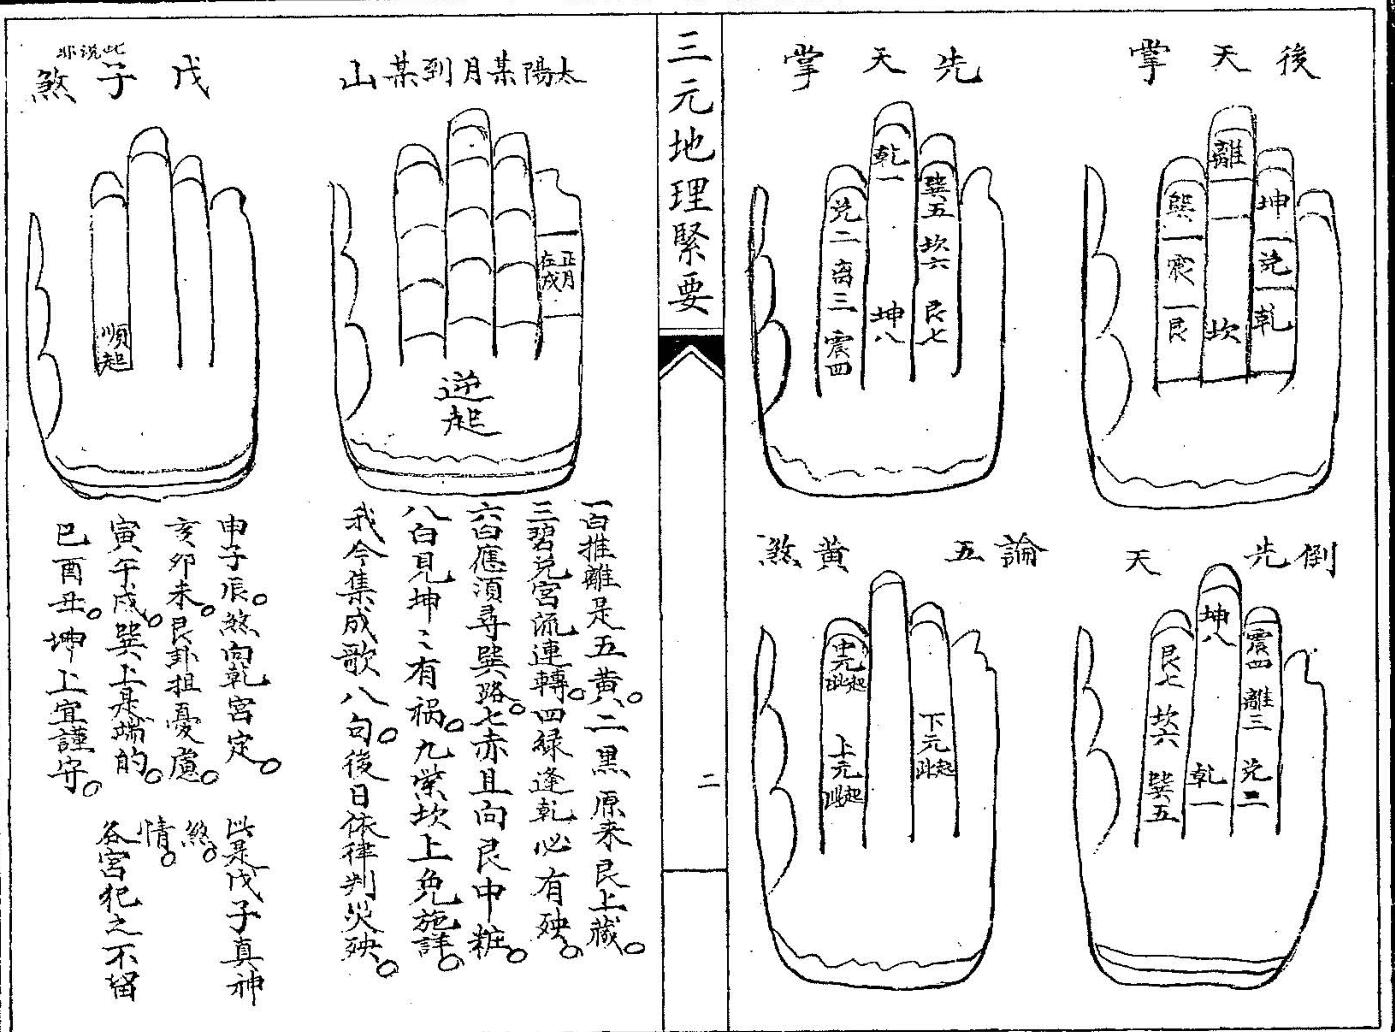 後天掌
離
巽
震
艮
坤
兌
乾
坎
先天掌
乾一
兌二
离三
震四
巽五
坎六
艮七
坤八
倒先天
坤八
艮七
坎六
巽五
震四
離三
兌二
乾一
論五黃煞
中元此起
上元此起
下元此起
三元地理緊要
二
太陽某月到某山
正月在戌
逆起
一白推離是五黃。二黑原来艮上藏。
三碧兌宮流連轉。四緑逢乾必有殃。
六白應須尋巽路。七赤且向艮中粧。
八白見坤〻有禍。九紫坎上免施詳。
我今集成歌八句。後日依律判災殃。
戊子煞
此说非
順起
申子辰。煞向乾宮定。
亥卯未。艮卦担憂慮。
寅午戌。巽上是端的。
巳酉丑。坤上宜謹守。
此是戊子真神
煞。
情。
各宮犯之不留